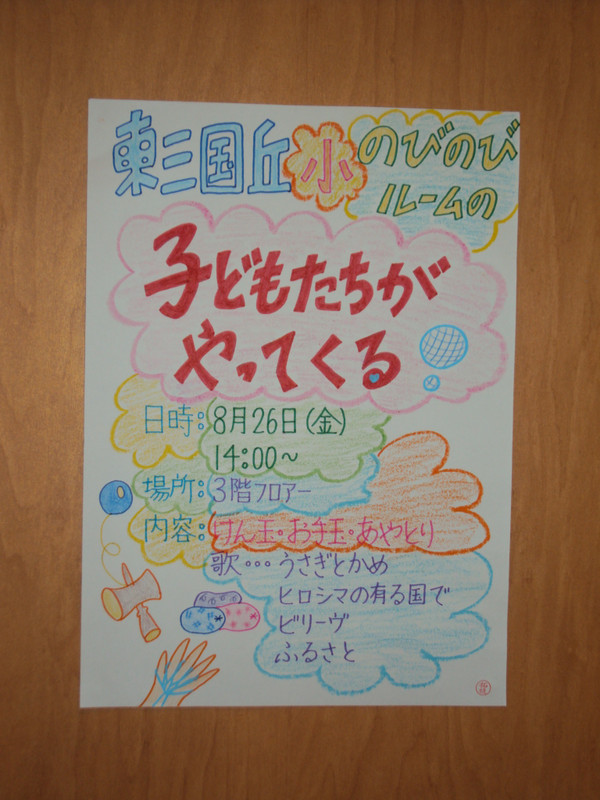 東三国丘小 のびのび
ルームの
子どもたちが
やってくる!
日時:8月26日(金)
14:00〜
場所:3階フロアー
内容:けん玉・お手玉・あやとり
歌・・・うさぎとかめ
ヒロシマの有る国で
ビリーヴ
ふるさと